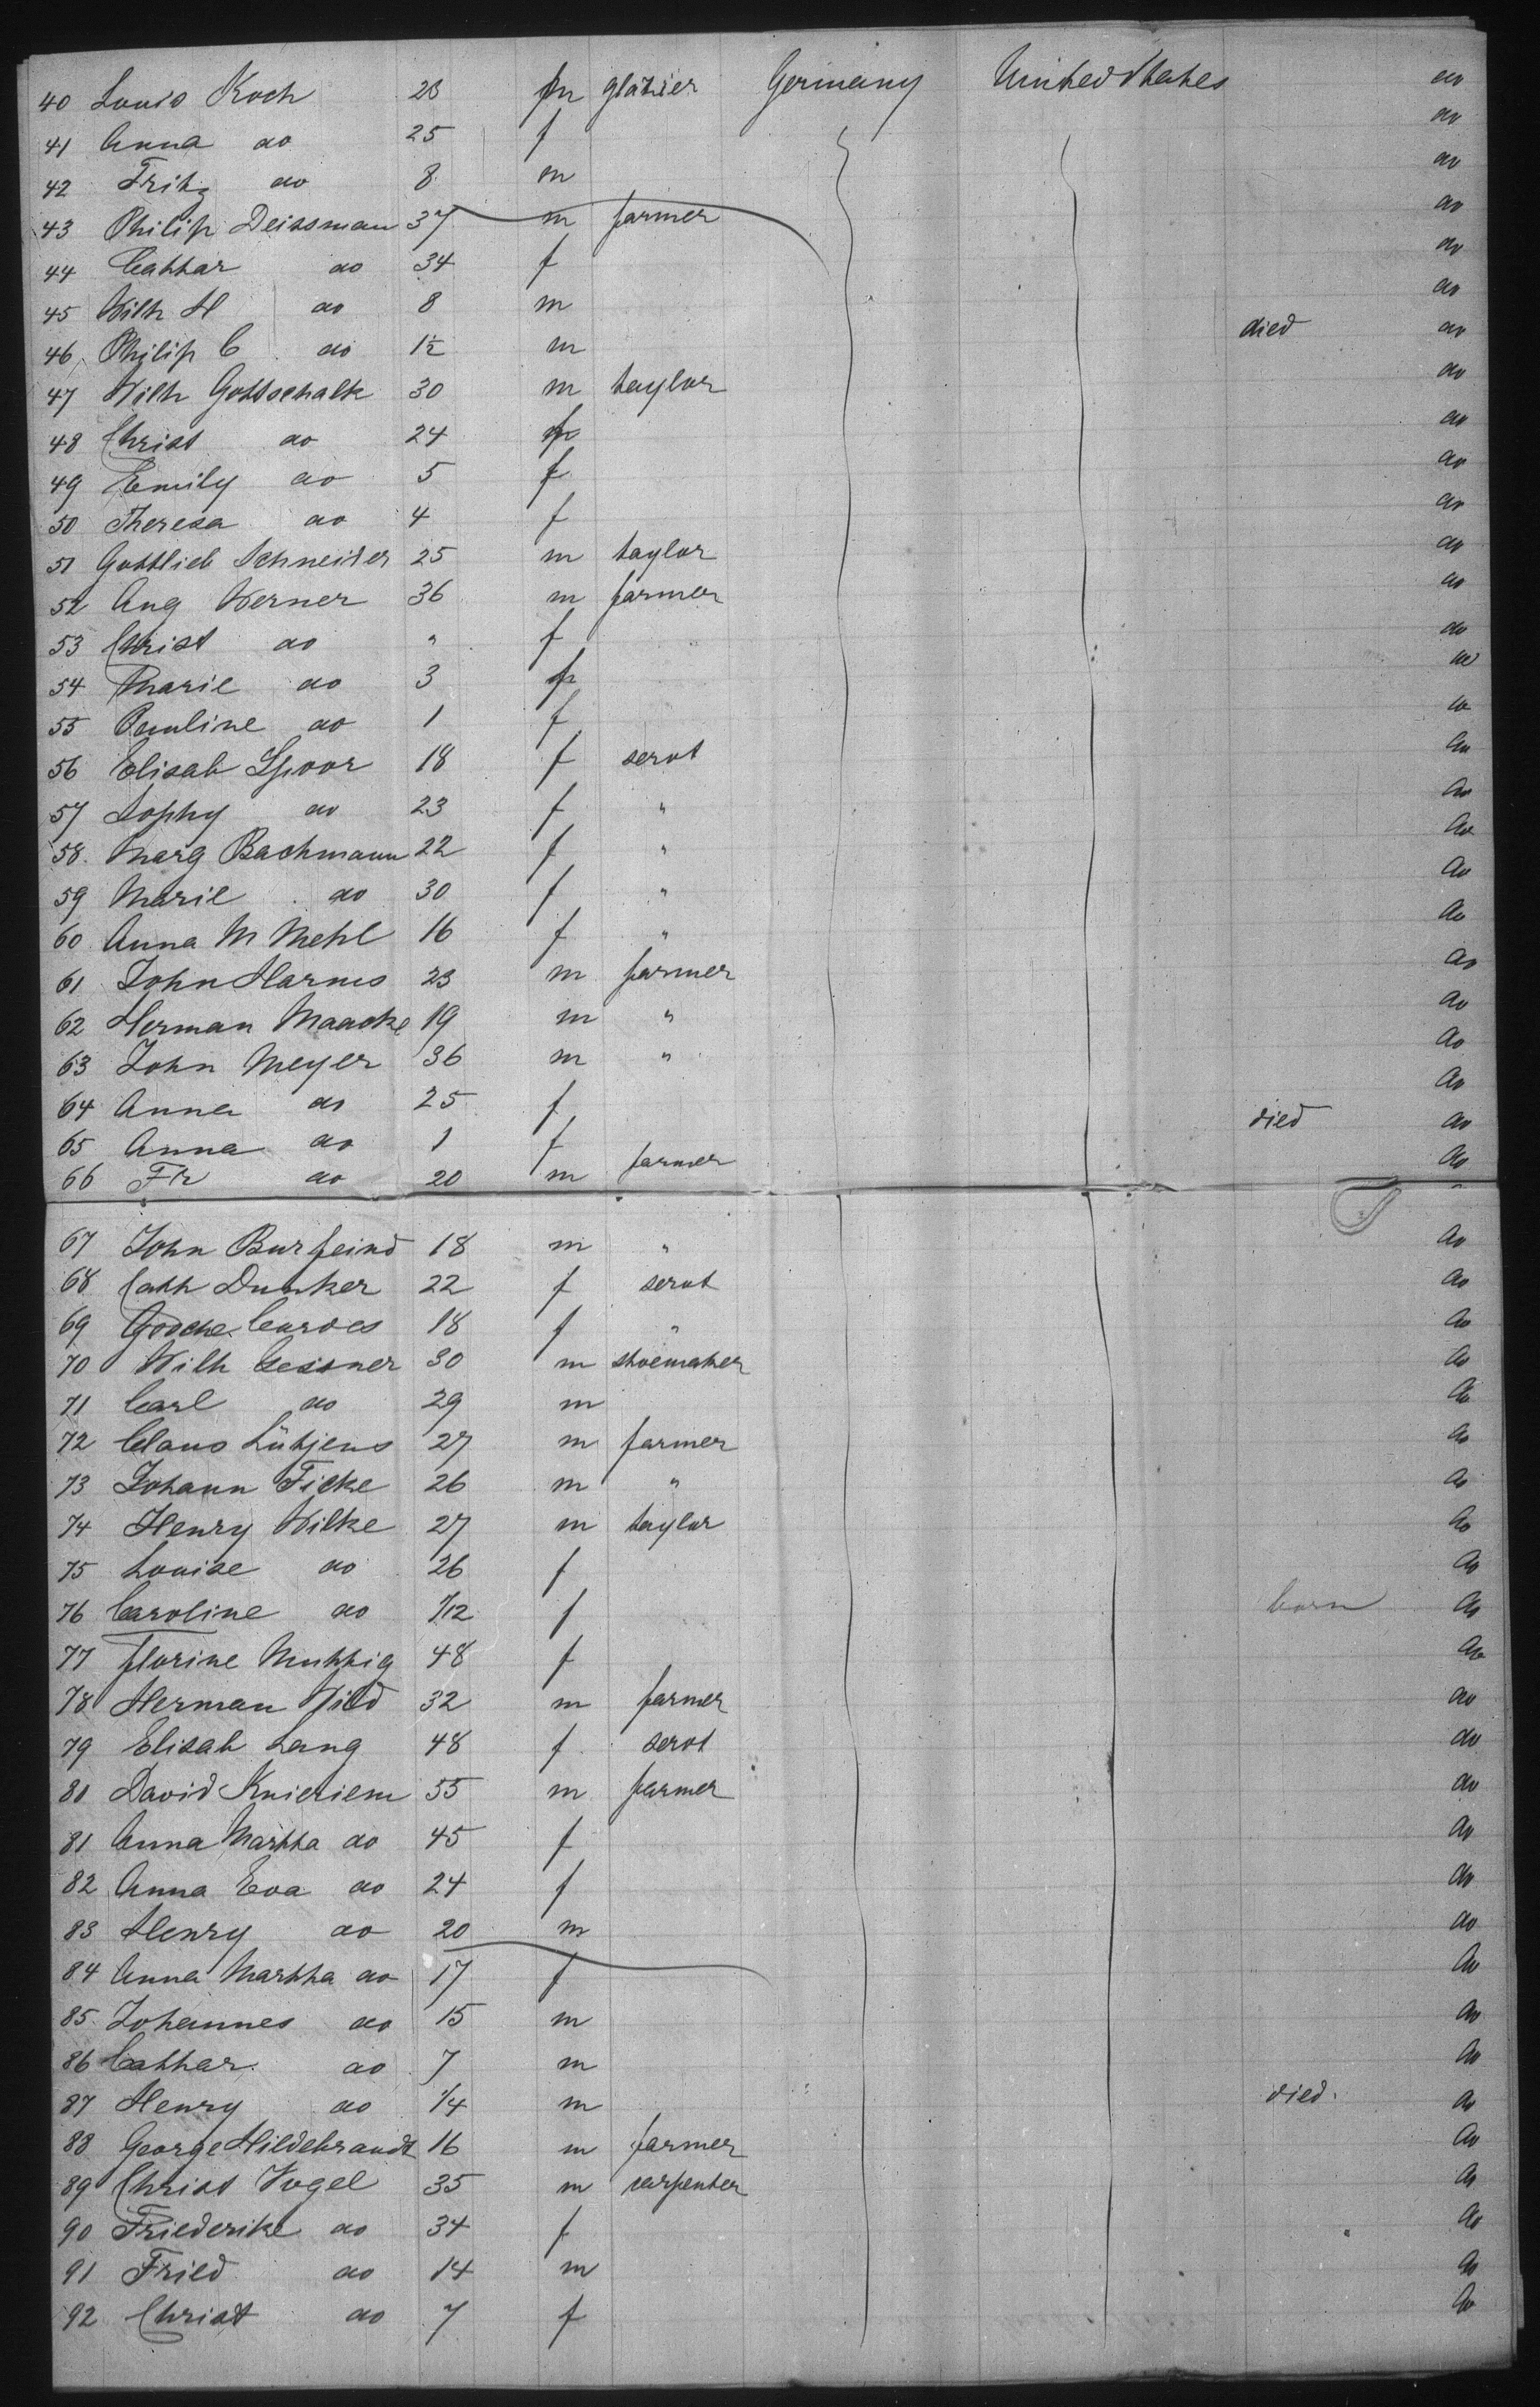 40 Louis Koch 28 m glazier Germany United States do
41 Anna do 25 f do
42 Fritz do 8 m do
43 Philip Deissman 37 m farmer do
44 Cathar do 34 f do
45 Wilh H do 8 m do
46 Philip C do 1½ m died do
47 Wilh Gottschalk 30 m taylor do
48 Christ do 24 f do
49 Emily do 5 f do
50 Theresa do 4 f do
51 Gottlieb Schneider 25 m taylor do
52 Aug Werner 36 m farmer do
53 Christ do " f do
54 Marie do 3 f do
55 Pauline do 1 f do
56 Elisab Spoor 18 f servt do
57 Sophy do 23 f " do
58. Marg Bachmann 22 f " do
59 Marie do 30 f " do
60 Anna M Mehl 16 f " do
61 John Harms 23 m farmer do
62 Herman Maacke 19 m " do
63 John Meyer 36 m " do
64 Anna do 25 f do
65 Anna do 1 f died do
66 Fr do 20 m farmer do
67 John Burfeind 18 m " do
68 Cath Dunker 22 f servt do
69 Cordes 18 f " do
70 Wilh Gessner 30 m shoemaker do
71 Carl do 29 m do
72 Claus Lütjens 27 m farmer do
73 Johann Ficke 26 m " do
74 Henry Wilke 27 m taylor do
75 Louise do 26 f do
76 Caroline do 1/12 f born do
77 Florine 48 f do
78 Herman 32 m farmer do
79 Elisab Lang 48 f servt do
80 David Knieriem 55 m farmer do
81 Anna Martha do 45 f do
82 Anna Eva do 24 f do
83 Henry do 20 m do
84 Anna Martha do 17 f do
85. Johannes do 15 m do
86 Cathar. do 7 m do
87 Henry do 1/4 m died. do
88 George Hildebrandt 16 m farmer do
89 Christ Vogel 35 m carpenter do
90 Friederike do 34 f do
91 Fried do 14 m do
92 Christ do 7 f do